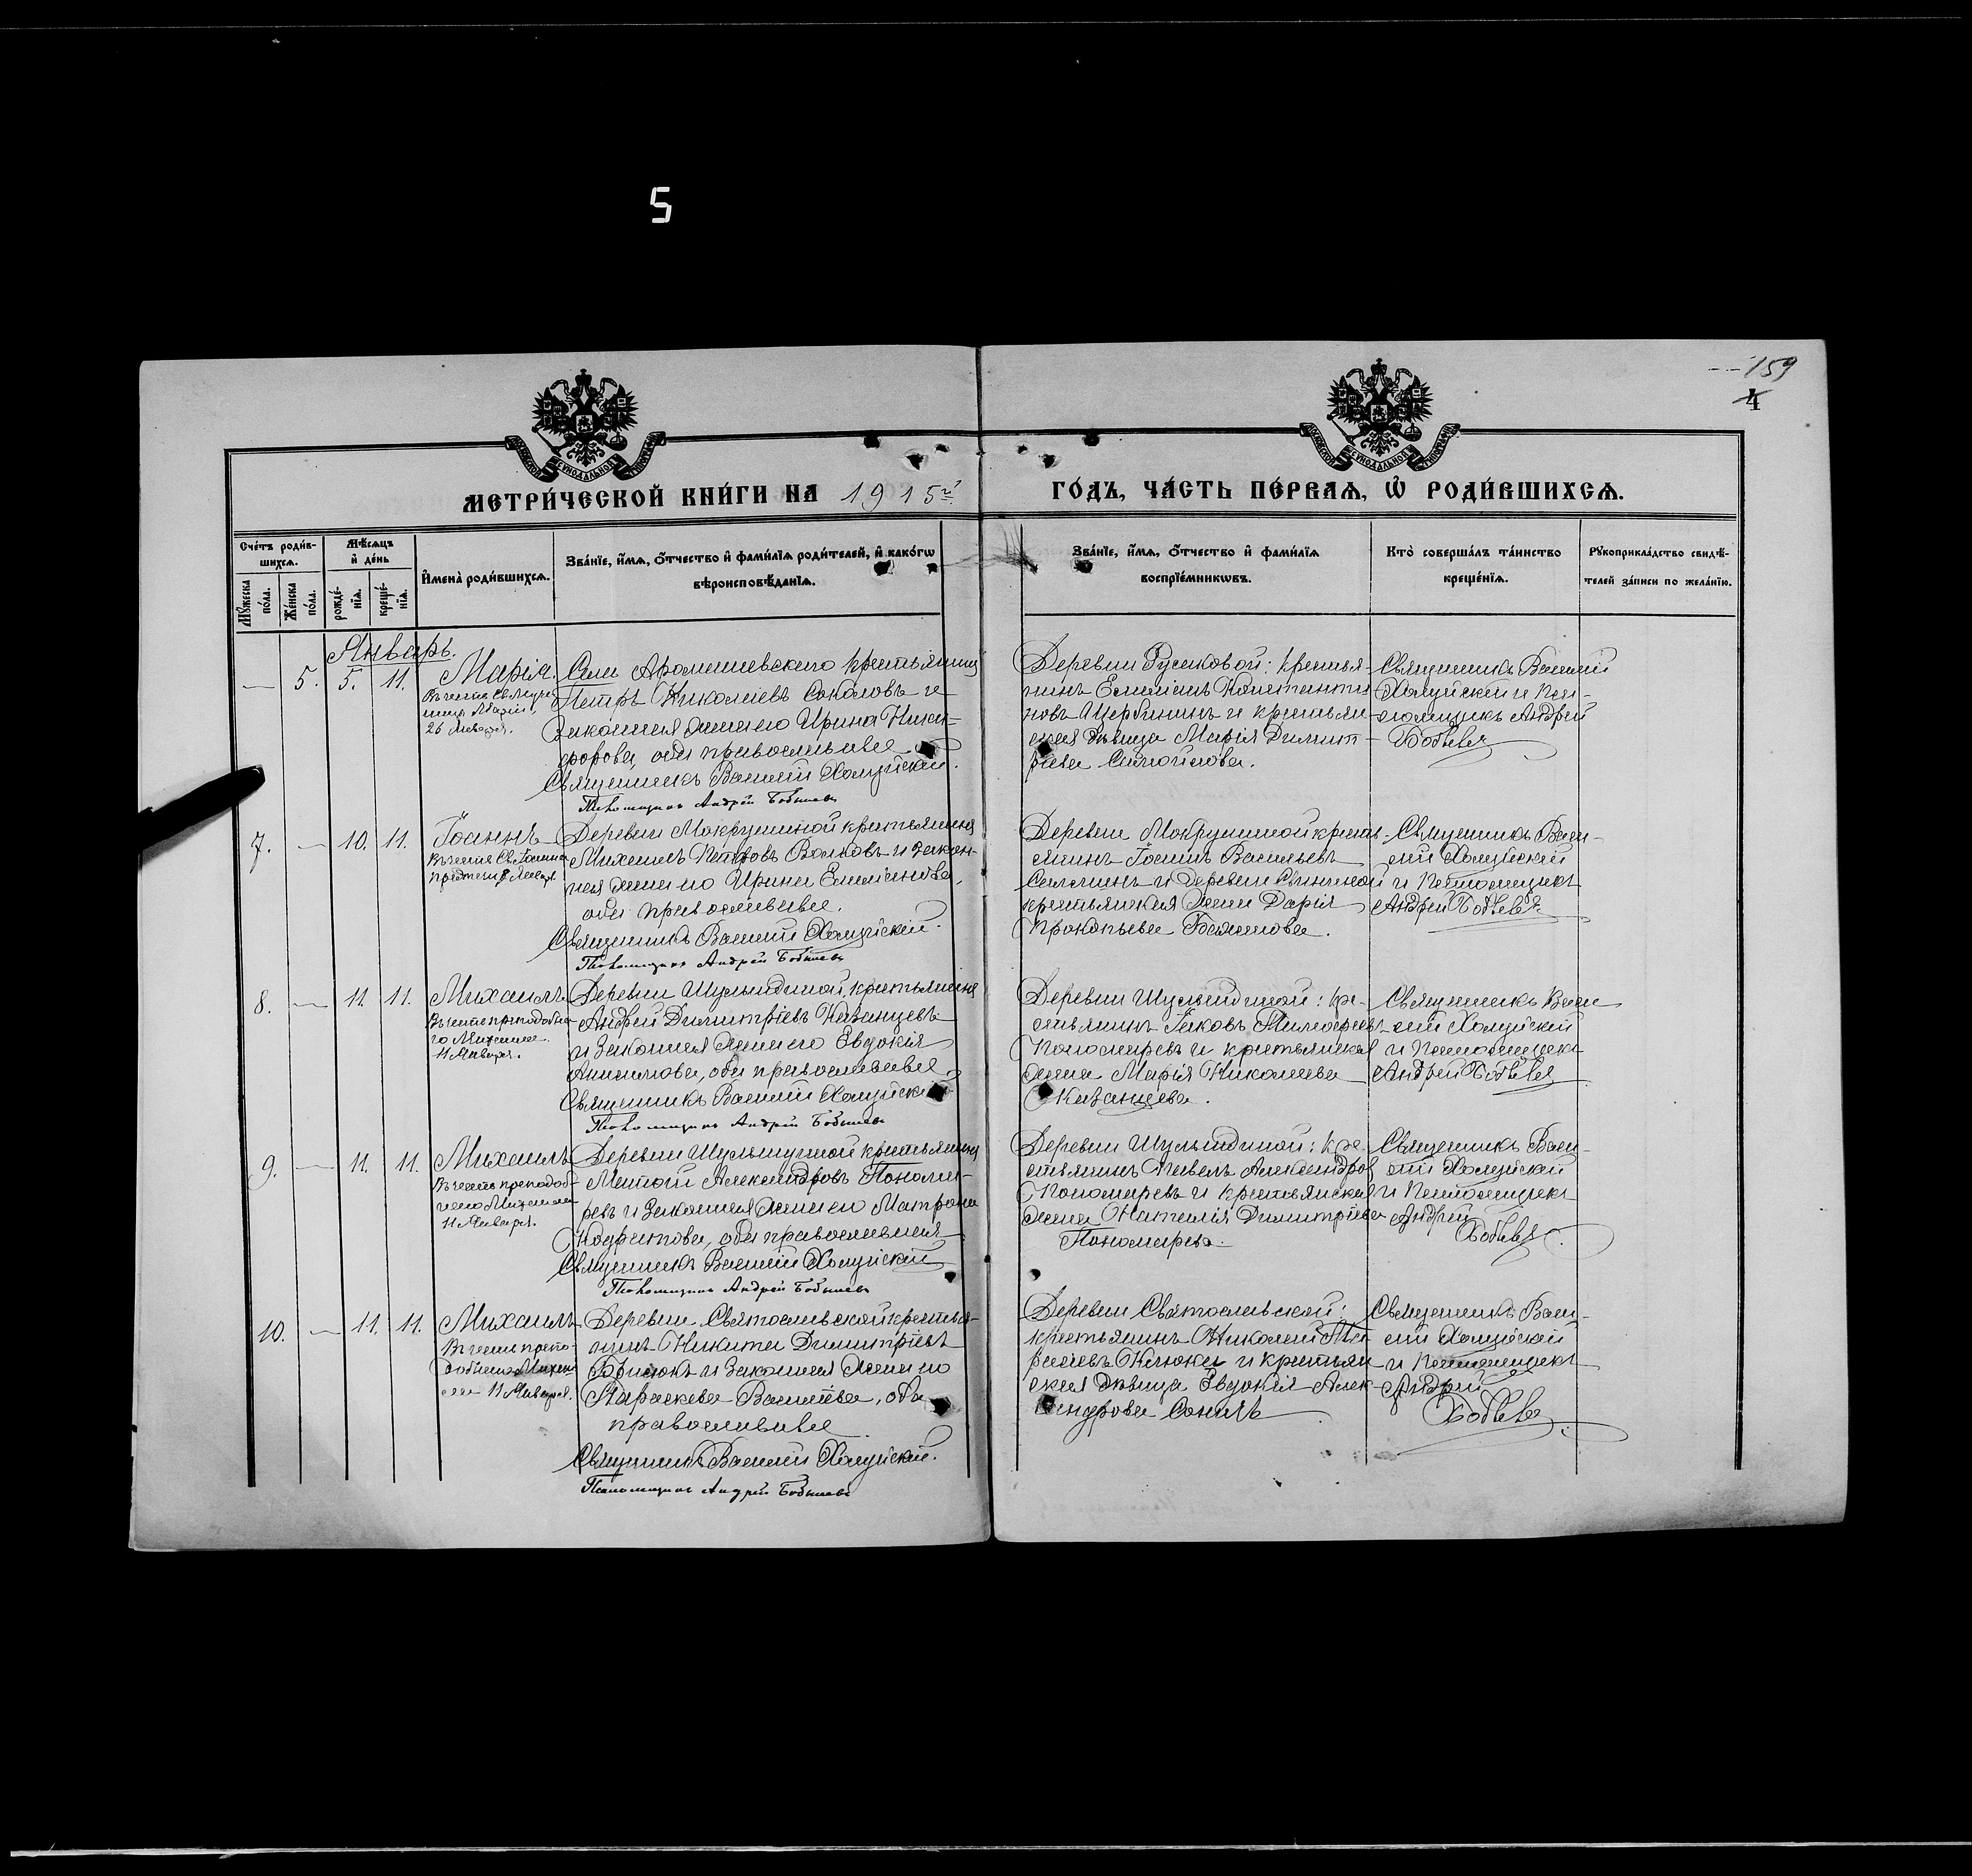 5
159
4
МЕТРИ́ЧЕСКОЙ КНИ́ГИ НА 1915 г.
ГО́ДЪ, ЧА́СТЬ ПЕ́РВАѦ, Ѽ РОДИ́ВШИХСѦ.
Сче́тъ роди́в-
шихсѧ.
Мꙋ́жеска
по́ла.
Же́нска
по́ла.
Мѣ́сѧцъ
и҆ де́нь
рожде́-
нїѧ.
креще́-
нїѧ.
И҆мена̀ роди́вшихсѧ.
Зва́нїе, и҆́мѧ, ѻ҆́тчество и҆ фами́лїѧ роди́телей, и҆ како́гѡ
вѣроисповѣ́данїѧ.
Зва́нїе, и҆́мѧ, ѻ҆́тчество и҆ фами́лїѧ
воспрїе́мникѡвъ.
Кто̀ соверша́лъ та́инство
креще́нїѧ.
Рꙋкоприкла́дство свидѣ́-
телей за́писи по жела́нїю.
Январь.
— 5. 5. 11.
Марія.
26 Января.
Села Аромашевскаго крестьянинъ
Петръ Николаевъ Соколовъ и
законная жена его Ирина Ники-
форова, оба православные
Священникъ Василій Хамуйскій.
Псаломщикъ Андрей Бобылевъ
Деревни Русаковой: крестья-
нинъ Емеліанъ Константи-
новъ Щербининъ и крестьян-
ская дѣвица Марія Димит-
ріева Самойлова.
Священникъ Василій
Хамуйскій и Пса-
ломщикъ Андрей
Бобылевъ
7. — 10. 11.
Іоаннъ
въ честь Св. Іоанна
Предтечи 7 Января
Деревни Мокрушиной крестьянинъ
Михаилъ Петровъ Волковъ и закон-
ная жена его Ирина Емеліанова,
оба православные.
Священникъ Василій Хамуйскій.
Псаломщикъ Андрей Бобылевъ
Деревни Мокрушиной кресть-
янинъ Іоаннъ Васильевъ
и деревни
крестьянская жена Дарія
Прокопьева Баженова.
Священникъ Васи-
лій Хамуйскій
и Псаломщикъ
Андрей Бобылевъ
8. — 11. 11.
Михаилъ
въ честь преподобна-
го Михаила
11 Января.
крестьянинъ
Андрей Димитріевъ Казанцевъ
и законная жена его Евдокія
оба православные
Священникъ Василій Хамуйскій
Псаломщикъ Андрей Бобылевъ
кре-
стьянинъ Іаковъ Тимофеевъ
Пономаревъ и крестьянская
жена Марія Николаева
Казанцева.
Священникъ Васи-
лій Хамуйскій
и Псаломщикъ
Андрей Бобылевъ
9. — 11. 11.
Михаилъ
въ честь преподоб-
наго Михаила
11 Января.
крестьянинъ
Александровъ Понома-
ревъ и законная жена его Матрона
Кодратова, оба православныя
Священникъ Василій Хамуйскій
Псаломщикъ Андрей Бобылевъ
кре-
стьянинъ Павелъ Александровъ
Пономаревъ и крестьянская
жена Наталія Димитріева
Пономарева.
Священникъ Васи-
лій Хамуйскій
и Псаломщикъ
Андрей
Бобылевъ.
10. — 11. 11.
Михаилъ
въ честь препо-
добнаго Миха-
ила 11 Января.
Деревни Святославской крестья-
нинъ Никита Димитріевъ
Борисюкъ и законная жена его
Параскева Васильева, оба
православные
Священникъ Василій Хамуйскій.
Псаломщикъ Андрей Бобылевъ
Деревни Святославской:
крестьянинъ Николай
и крестьян-
ская дѣвица Евдокія Алек-
сандрова
Священникъ Васи-
лій Хамуйскій
и Псаломщикъ
Андрей
Бобылевъ